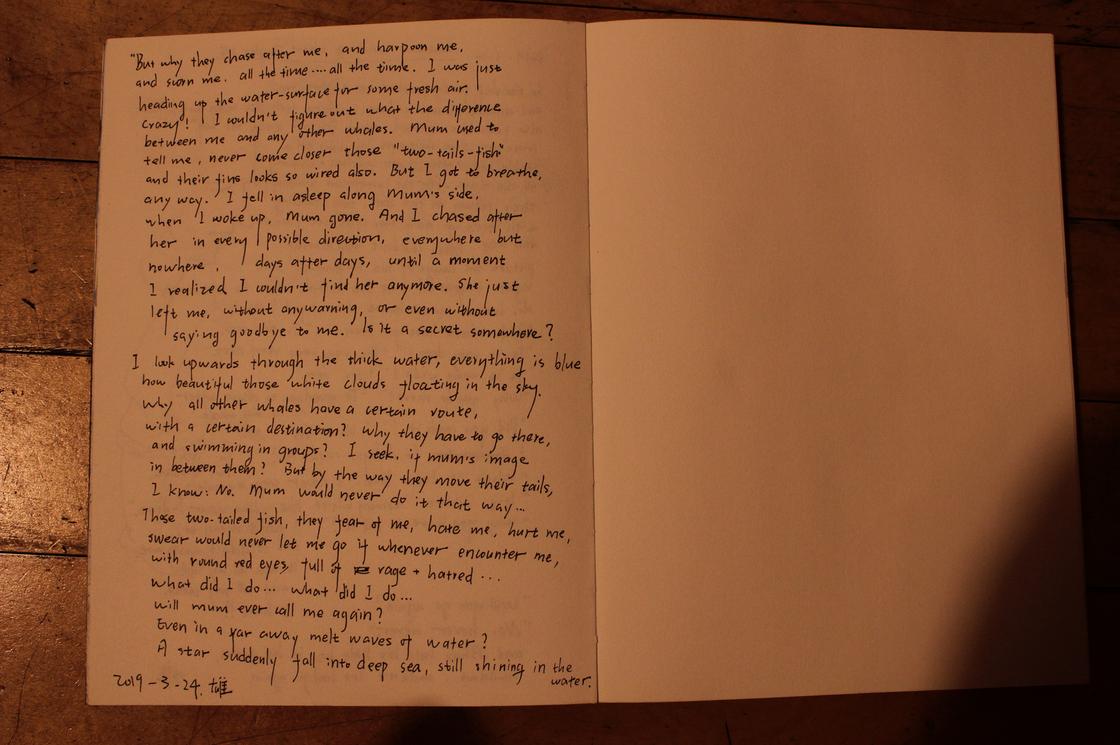 "But why they chase after me, and harpoon me,
and sworn me. all the time....all the time. I was just
heading up the water-surface for some fresh air.
Crazy! I wouldn't figure out what the difference
between me and any other whales. Mum used to
tell me, never come closer those "two-tails-fish"
and their fins looks so wired also. But I got to breathe,
any way. I fell in asleep along Mum's side,
when I woke up, Mum gone. And I chased after
her in every possible direction, everywhere but
nowhere, days after days, until a moment
I realized I wouldn't find her anymore. She just
left me, without anywarning, or even without
saying goodbye to me. Is it a secret somewhere?
I look upwards through the thick water, everything is blue
how beautiful those white clouds floating in the sky.
Why all other whales have a certain route,
with a certain destination? Why they have to go there,
and swimming in groups? I seek, if mum's image
in between them? But by the way they move their tails,
I know: No. Mum would never do it that way...
Those two-tailed fish, they fear of me, hate me, hurt me,
swear would never let me go if whenever encounter me,
with round red eyes, full of rage + hatred ...
What did I do... what did I do...
will mum ever call me again?
Even in a far away melt waves of water?
A star suddenly fall into deep sea, still shining in the
water.
2019-3-24.